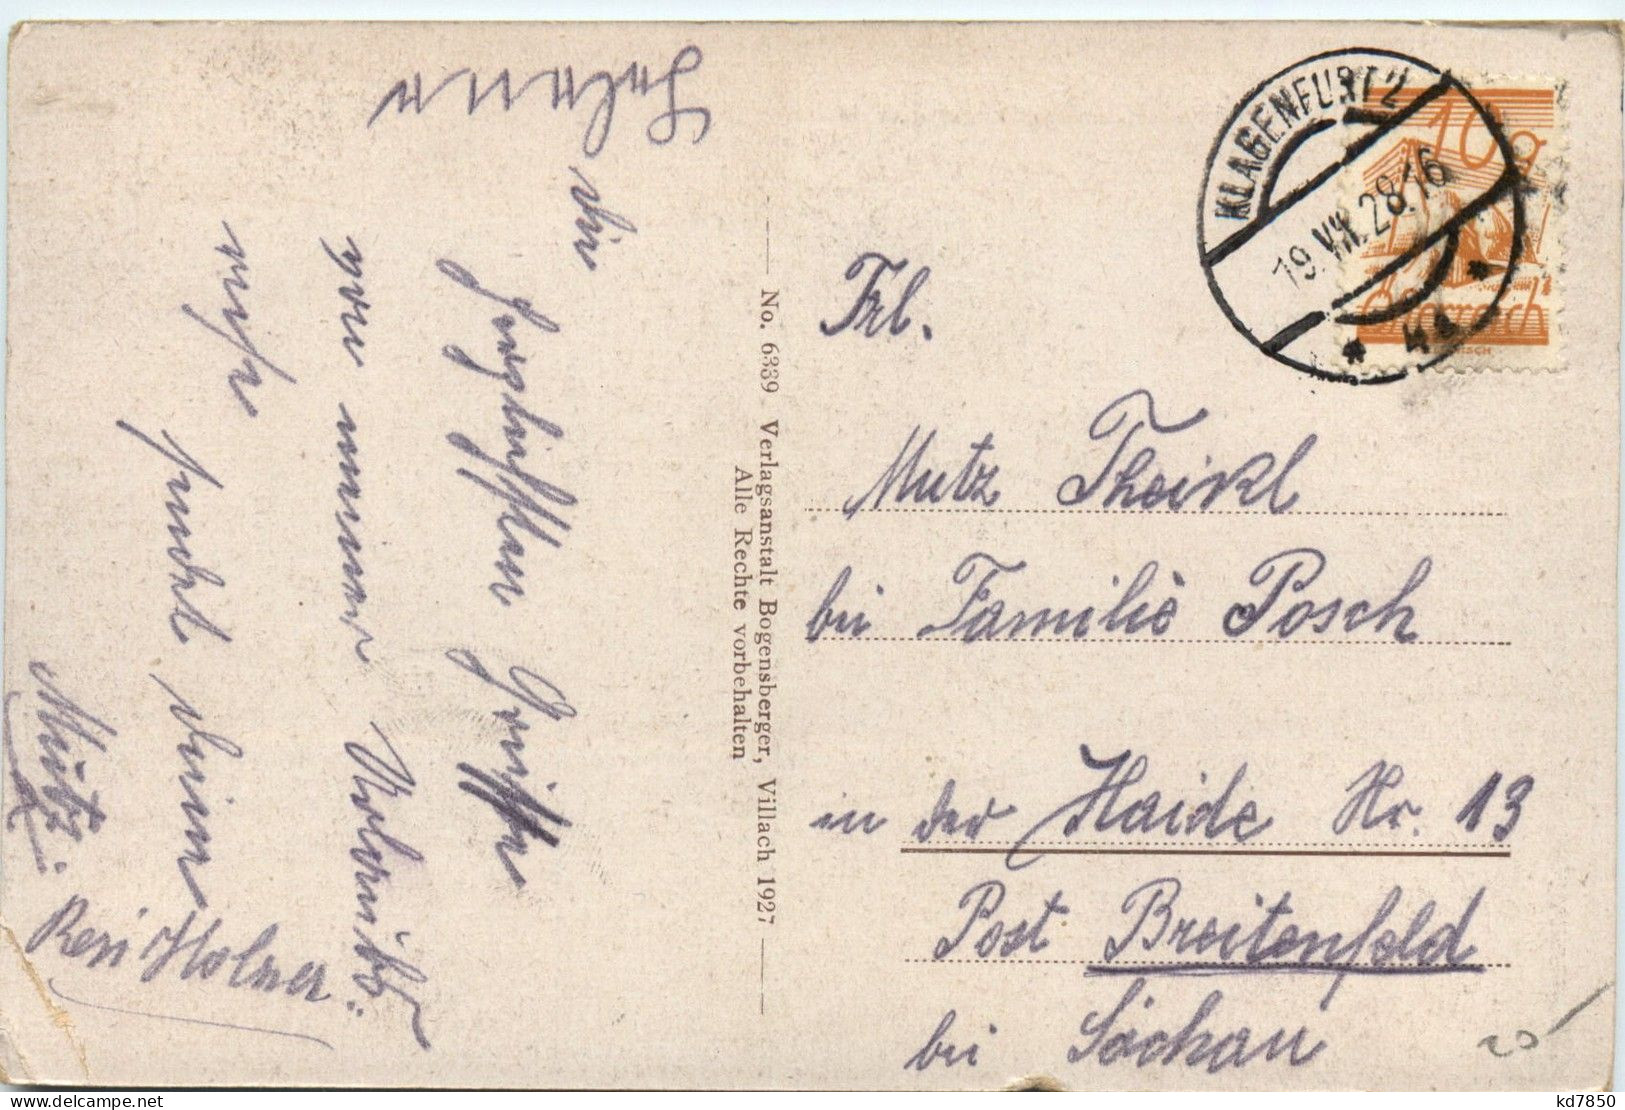 Helene
die
herzlichsten Grüsse
von meiner Urlaubs
reise sendet deine
Mutz.
Resi Holzer
No. 6339 Verlagsanstalt Bogensberger, Villach 1927
Alle Rechte vorbehalten
KLAGENFURT 2
19. VII. 28. 16
* 4a *
10g
Österreich
Frl.
Mutz Theikl
bei Familie Posch
in der Haide Nr. 13
Post Breitenfeld
bei Söchau
20
kd7850